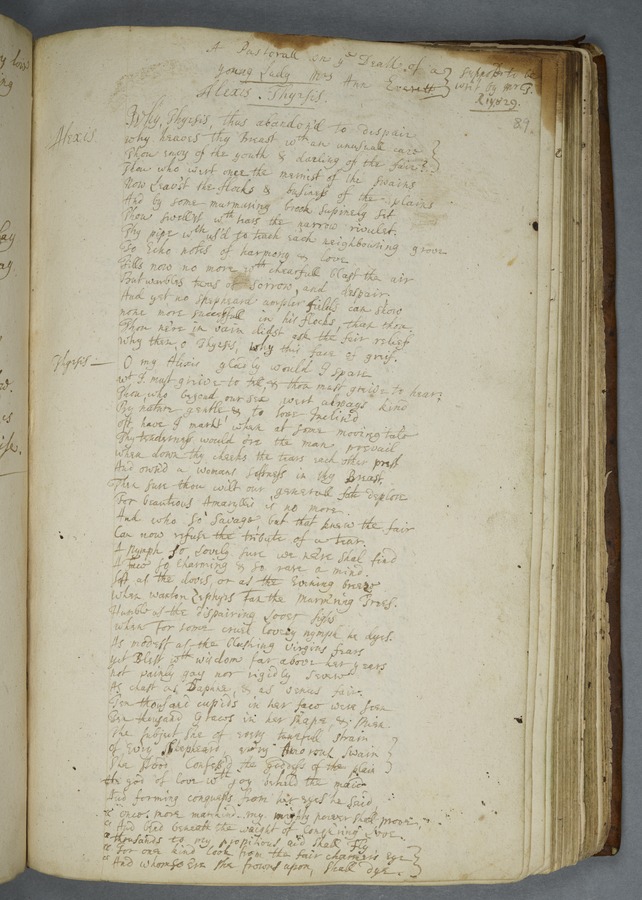 A Pastorall on yᵉ Death of a
young Lady Mrs Ann Everett
suppos'd to be
writ by mr G.
Alexis. Thyrsis.
89.
Alexis
Why, Thyrsis, thus abandon'd to despair
why heaves thy Breast wᵗʰ an unusual care
Thou envy of the youth & darling of the fair
Thou who wert once the merriest of the swains
Now leav'st the flocks & business of the plains
And by some murmuring brook supinely sit
Thou swell'st wᵗʰ tears the narrow rivulet.
Thy pipe wᶜʰ us'd to teach each neighbouring grove
To Echo notes of harmony & love
Fills now no more wᵗʰ chearfull blast the air
But warbles tunes of sorrow, and despair.
And yet no shepheard nobler fields can show
none more successfull in his flocks, than thou.
Thou ne're in vain didst ask the fair relief
Why then, o Thyrsis, why this face of grief.
Thyrsis
O my Alexis gladly would I spare
wᵗ I must grieve to tell & thou must grieve to hear.
Thou, who beyond our sex wert always kind
By nature gentle & to love Inclin'd
oft have I mark'd when at some moving tale
Thy tenderness would o're the man prevail
when down thy cheeks the tears each other prest
And own'd a womans softness in thy Breast.
Then sure thou wilt our generall fate deplore
For beauteous Amaryllis is no more.
And who so savage, but that knew the fair
Can now refuse the tribute of a tear.
A nymph so lovely sure we ne're shal find
A face so charming & so rare a mind.
soft as the doves, or as the Evening breeze
when wanton Zephyrs fan the murm'ring Trees.
Humble as the dispairing lover sighs
when for some cruel lovely nymph he dyes.
As modest as the blushing virgins fears
yet Blest wᵗʰ wisdom far above her years
not vainly gay nor rigidly severe
As chast as Daphne, & as venus fair.
Ten thousand cupids in her face were seen
Ten thousand Graces in her shape, & Mien
The subject she of every tunefull strain
of Every Shepheard, every Amorous swain
she stood Confess'd the Goddess of the plain
the god of love wᵗʰ joy beheld the maid
And forming conquests from her eyes he said
" once more mankind my mighty power shal prove
" And bend beneath the weight of Conquering love.
" thousands to my propitious aid shall fly
" For one kind look from the fair charmers Eye
" And whomso Ere she frowns upon, shall dye.